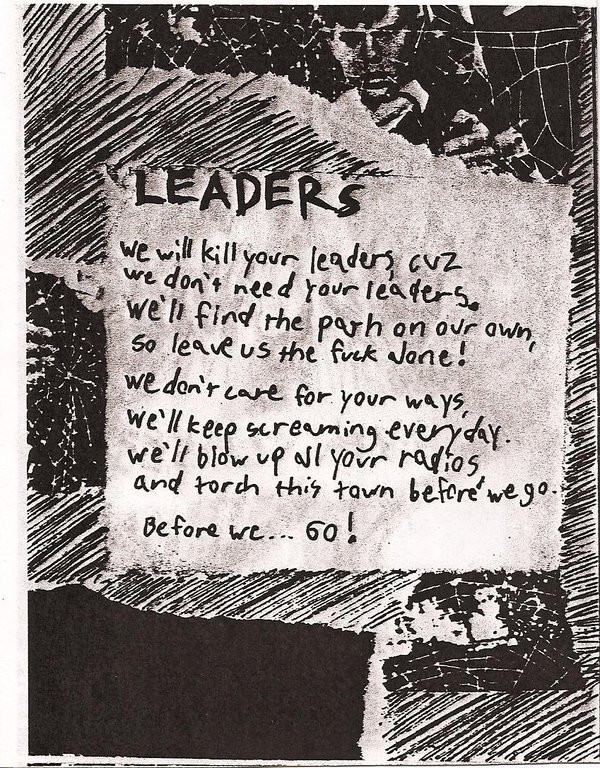 LEADERS
we will kill your leaders, cuz
we don't need your leaders.
we'll find the path on our own,
so leave us the fuck alone!
we don't care for your ways,
we'll keep screaming everyday.
we'll blow up all your radios
and torch this town before we go.
Before we... GO!